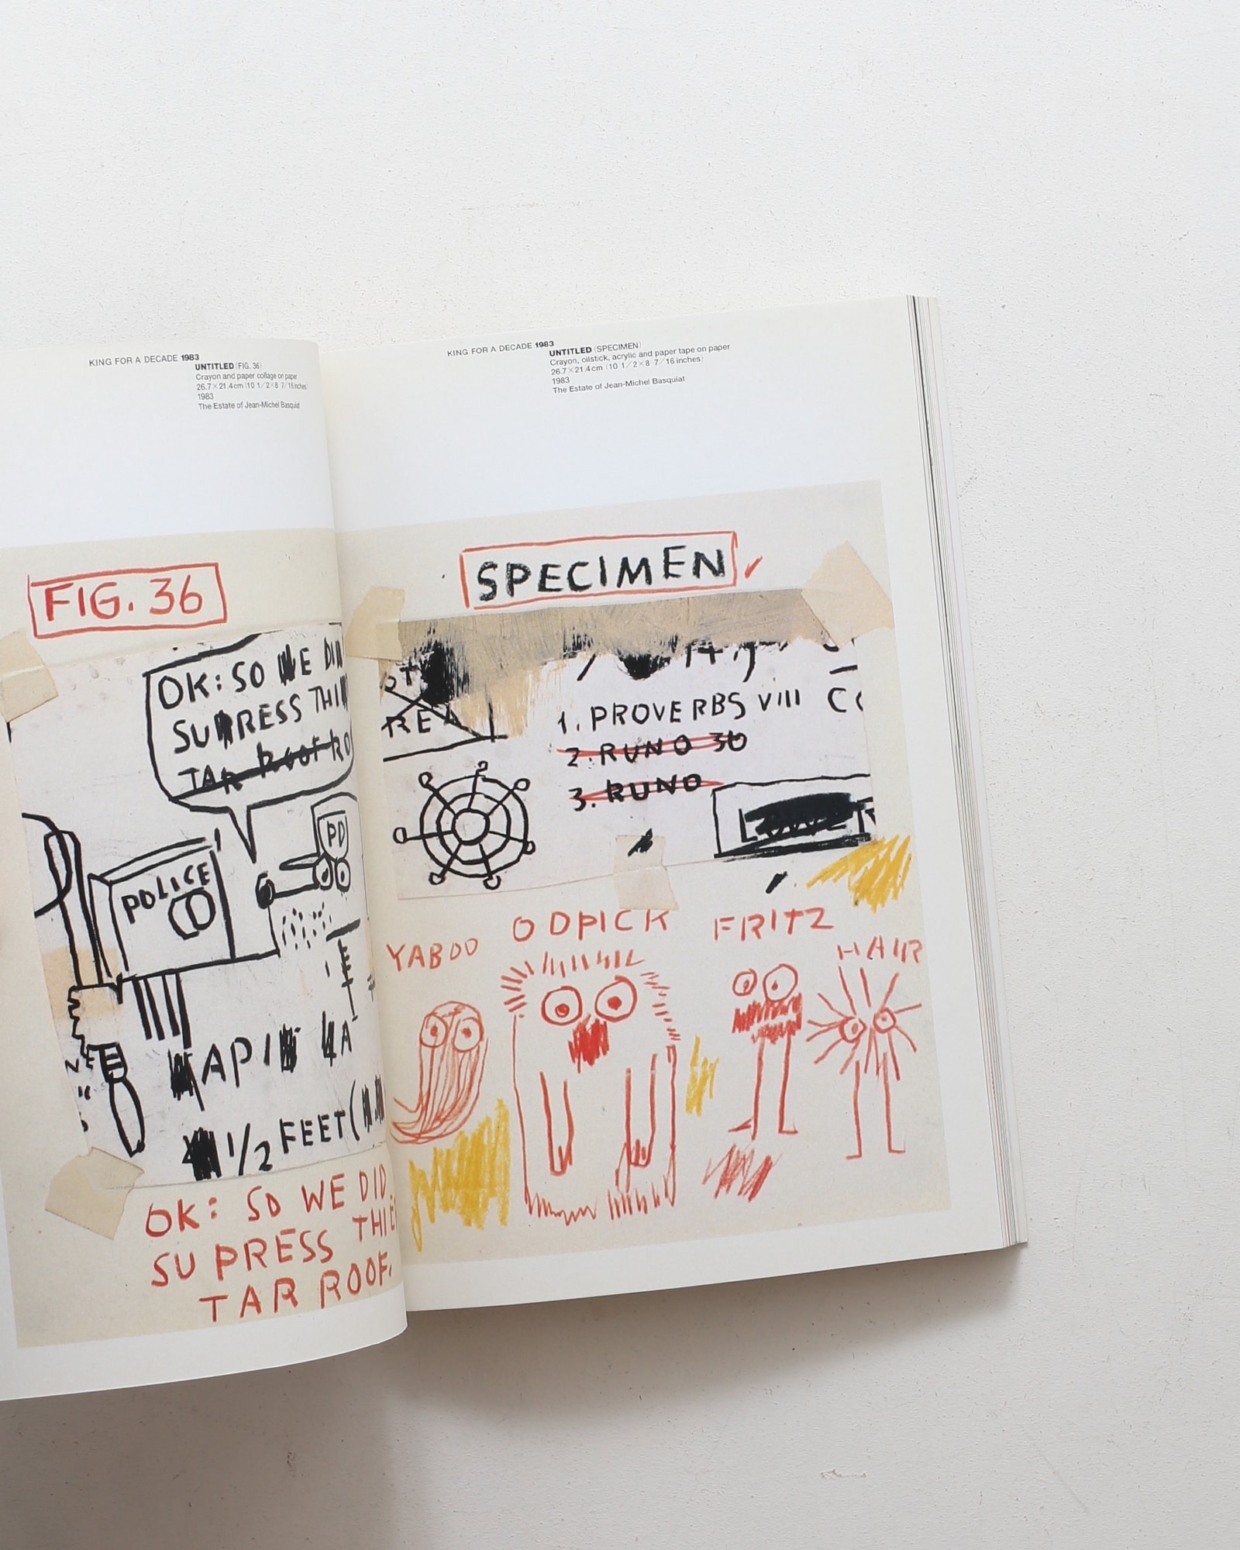 KING FOR A DECADE 1983
UNTITLED (FIG. 36)
Crayon and paper collage on paper
26.7×21.4cm (10 1/2×8 7/16 inches)
1983
The Estate of Jean-Michel Basquiat
FIG. 36
OK: SO WE DID
SUPRESS THI
TAR ROOF RO
PD
POLICE
API
1/2 FEET (
OK: SO WE DID
SUPRESS THI
TAR ROOF.
KING FOR A DECADE 1983
UNTITLED (SPECIMEN)
Crayon, oilstick, acrylic and paper tape on paper
26.7×21.4cm (10 1/2×8 7/16 inches)
1983
The Estate of Jean-Michel Basquiat
SPECIMEN
REA
1. PROVERBS VIII
2. RUNO 36
3. RUNO
YABOO
ODPICK
FRITZ
HAIR